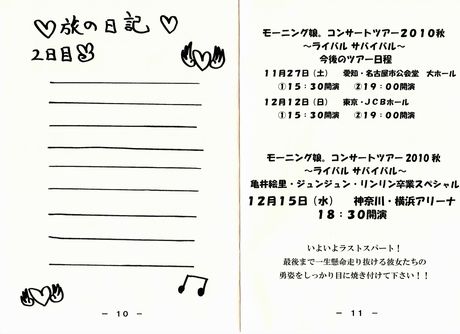 ♡旅の日記♡
2日目
－ 10 －
モーニング娘。コンサートツアー2010秋
～ライバル サバイバル～
今後のツアー日程
11月27日（土） 愛知・名古屋市公会堂 大ホール
①15：30開演 ②19：00開演
12月12日（日） 東京・JCBホール
①15：30開演 ②19：00開演
モーニング娘。コンサートツアー2010秋
～ライバル サバイバル～
亀井絵里・ジュンジュン・リンリン卒業スペシャル
12月15日（水） 神奈川・横浜アリーナ
18：30開演
いよいよラストスパート！
最後まで一生懸命走り抜ける彼女たちの
勇姿をしっかり目に焼き付けて下さい！！
－ 11 －